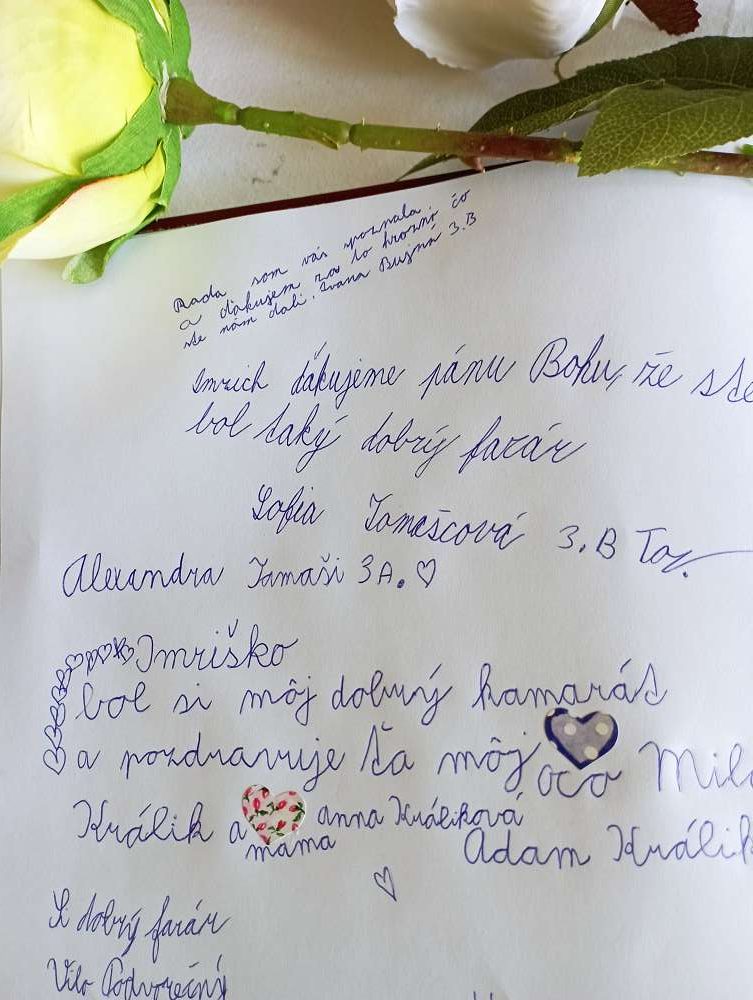 Rada som vás spoznala.
a ďakujem za to hrozno čo
ste nám dali. Ivana Bujná 3.B
Imrich ďakujeme pánu Bohu, že ste
bol taký dobrý farár
Sofia Tomašcová 3.B
Alexandra Tamaši 3A. ♡
Imriško
bol si môj dobrý kamarát
a pozdravuje ťa môj oco
Králik a mama anna Králiková
Adam Králik
Si dobrý farár
Vilo Podvorečný